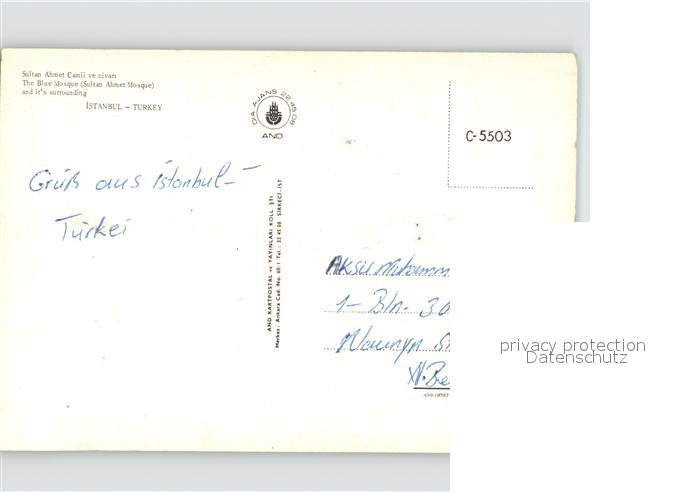 Sultan Ahmet Camii ve civarı
The Blue Mosque (Sultan Ahmet Mosque)
and it's surrounding
İSTANBUL – TURKEY
DİA-AJANS 22 45 08
AND
C-5503
Grüß aus istanbul –
Türkei
AND KARTPOSTAL ve YAYINLARI KOLL. ŞTİ
Merkez: Ankara Cad. No. 60/1 Tel.: 22 45 08 SİRKECİ-İST
1- Bln. 30
W. Be
AND OFSET
privacy protection
Datenschutz